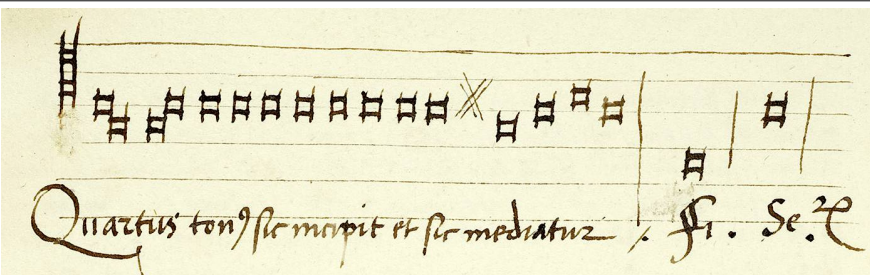 Quartus tonꝰ sic incipit et sic mediatur ⁒ Fi. Se.